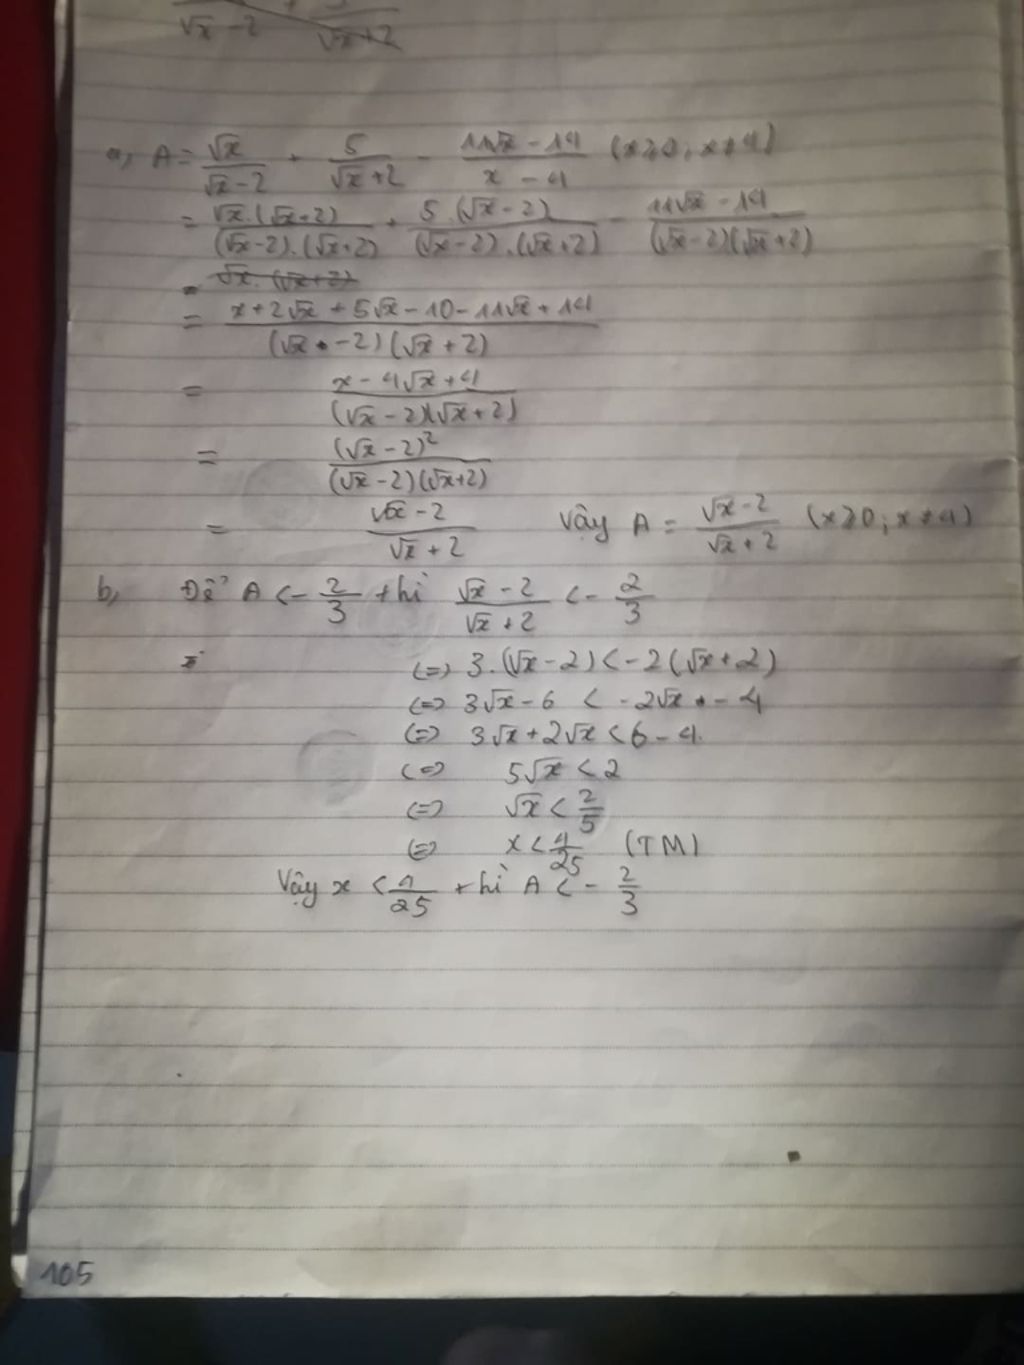 √x - 2   √x + 2
a, A = √x/(√x - 2) + 5/(√x + 2) - (11√x - 14)/(x - 4) (x ≥ 0; x ≠ 4)
= √x.(√x+2)/((√x-2).(√x+2)) + 5.(√x-2)/((√x-2).(√x+2)) - (11√x - 14)/((√x-2)(√x+2))
= √x.(√x+2)
= (x + 2√x + 5√x - 10 - 11√x + 14)/((√x - 2)(√x + 2))
= (x - 4√x + 4)/((√x - 2)(√x + 2))
= (√x - 2)²/((√x - 2)(√x+2))
= (√x - 2)/(√x + 2) Vậy A = (√x - 2)/(√x + 2) (x ≥ 0; x ≠ 4)
b, Để A < - 2/3 thì (√x - 2)/(√x + 2) < - 2/3
(=) 3.(√x - 2) < -2(√x + 2)
(=) 3√x - 6 < -2√x - 4
(=) 3√x + 2√x < 6 - 4
(=) 5√x < 2
(=) √x < 2/5
(=) x < 4/25 (TM)
Vậy x < 4/25 thì A < - 2/3
105